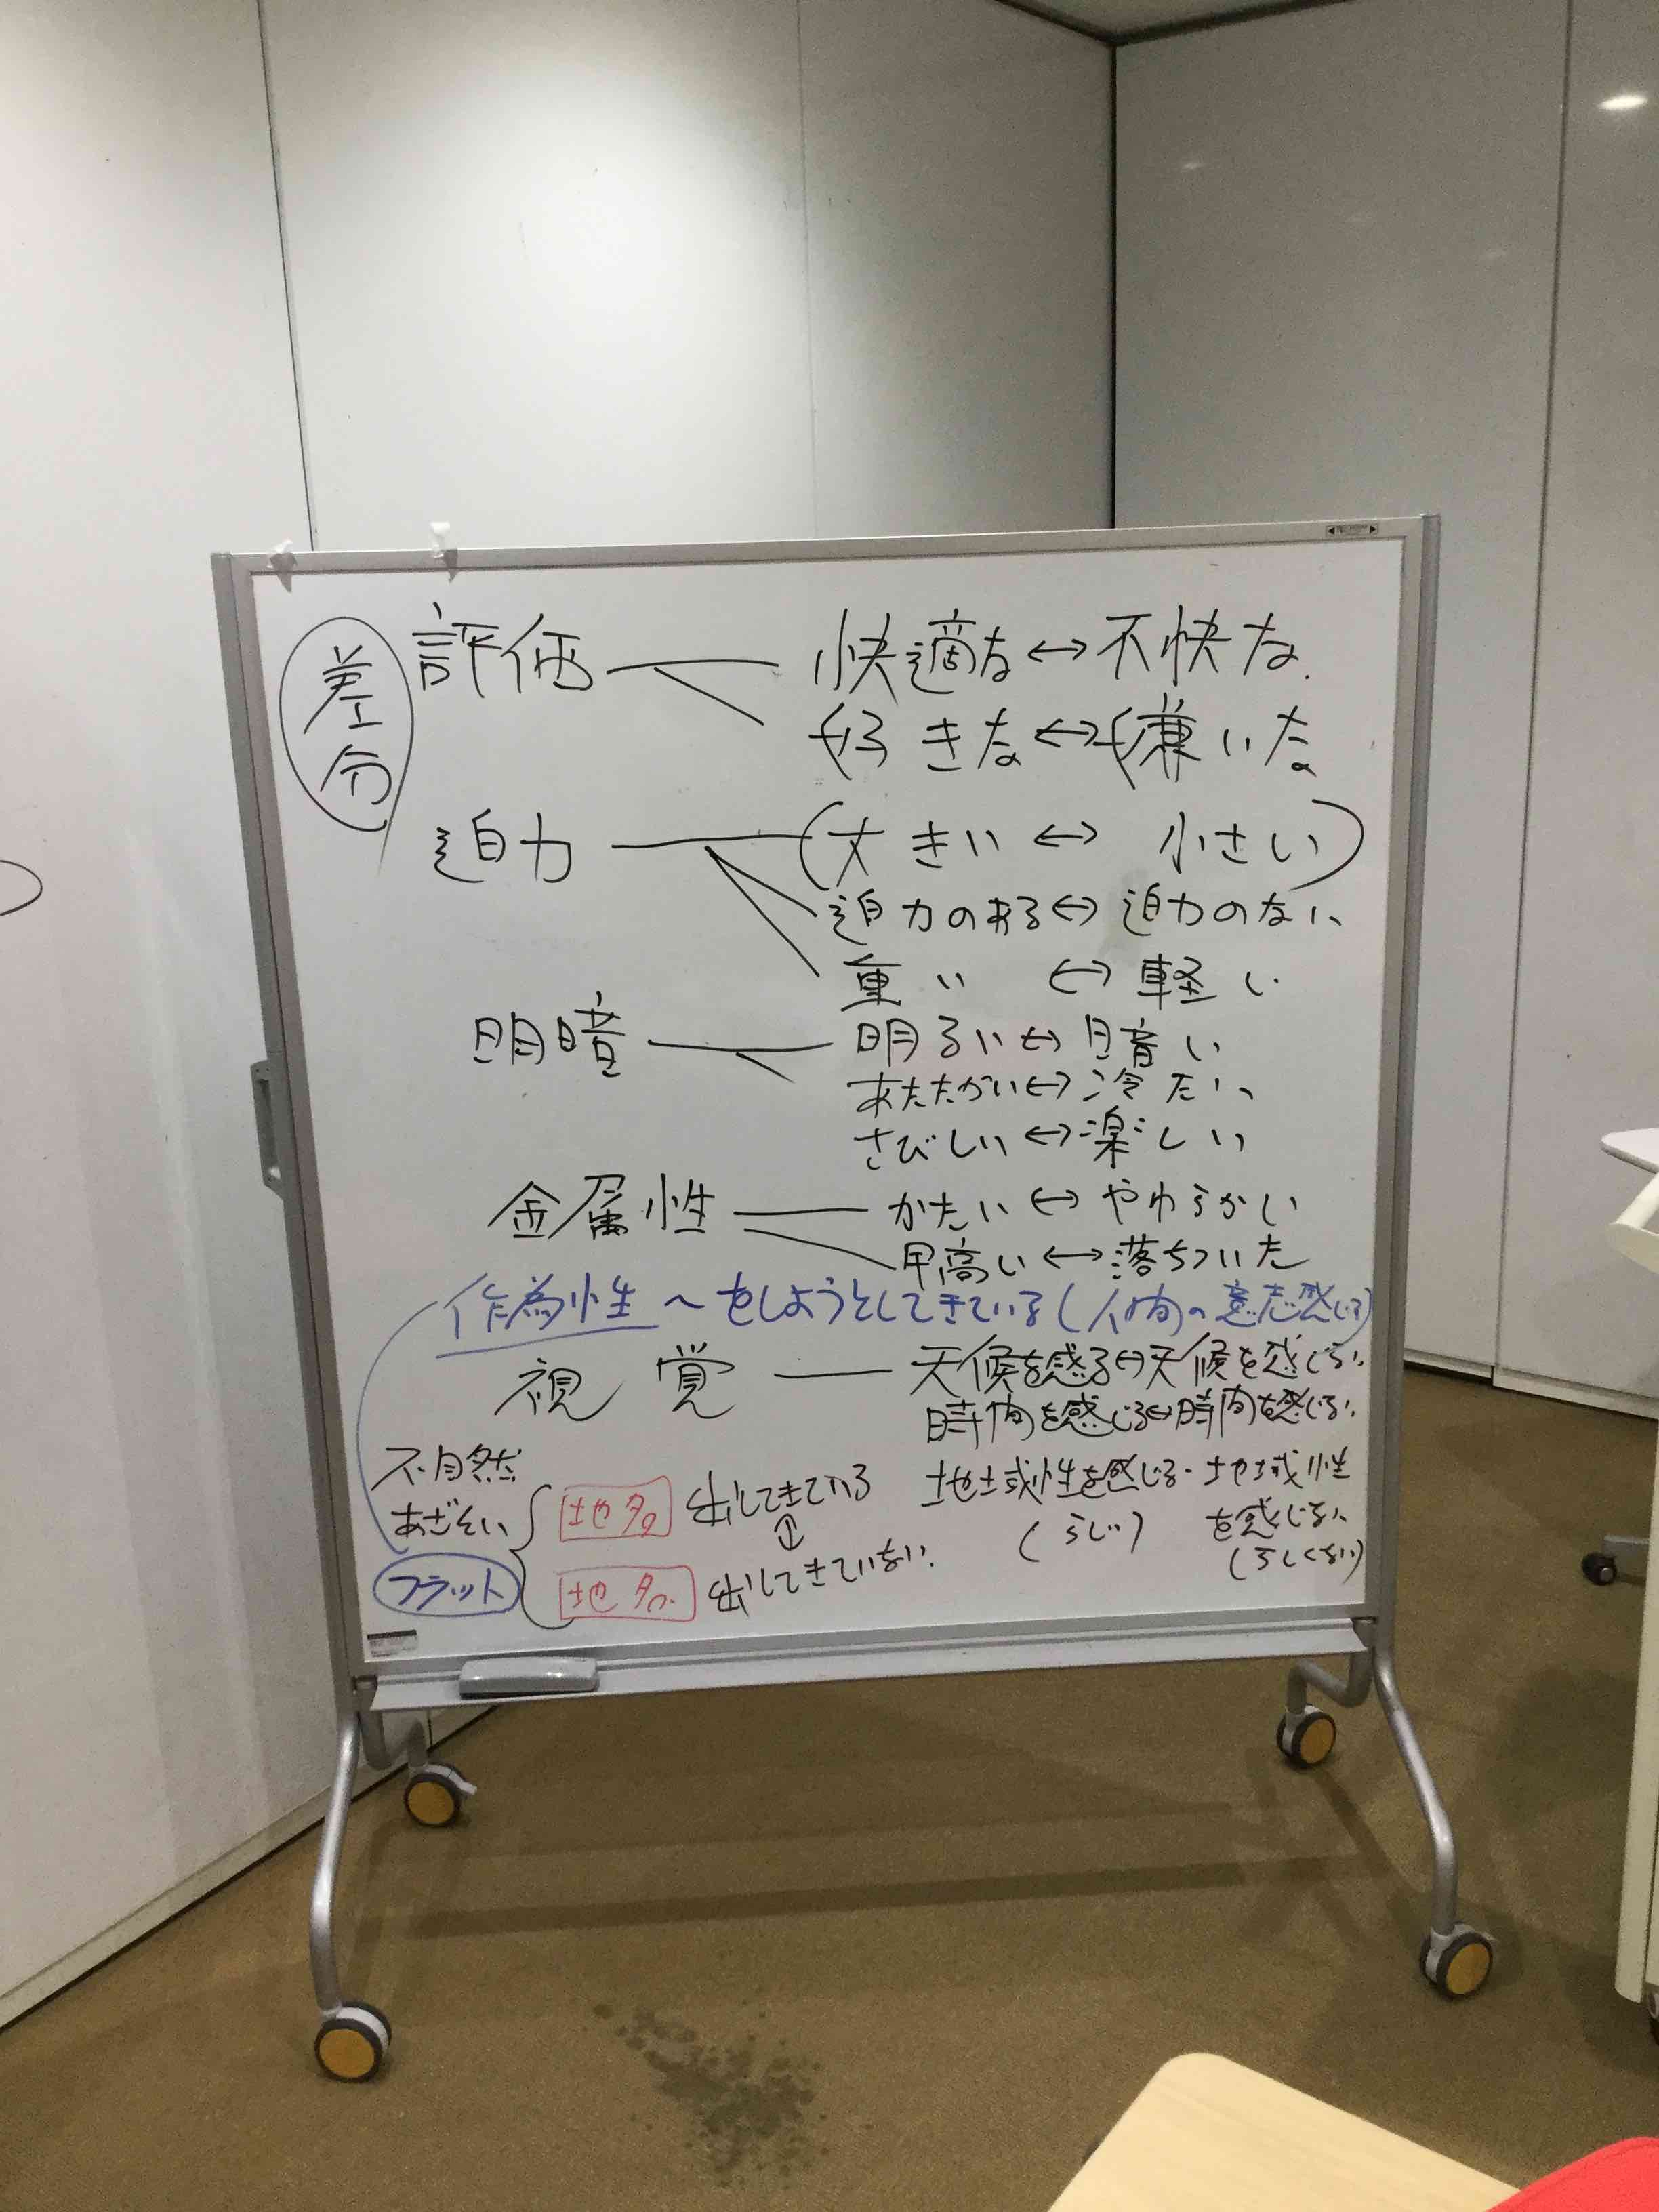 差分
評価
快適な↔不快な
好きな↔嫌いな
迫力
(大きい↔小さい)
迫力のある↔迫力のない
重い↔軽い
明暗
明るい↔暗い
あたたかい↔冷たい
さびしい↔楽しい
金属性
かたい↔やわらかい
甲高い↔落ちついた
作為性 〜をしようとしてきている(人間の意志感じる)
視覚
天候を感る↔天候を感じない
時間を感じる↔時間を感じない
地域性を感じる・地域性
を感じない
(らしい)
(らしくない)
不自然
あざとい
フラット
出してきている
↕
出してきていない